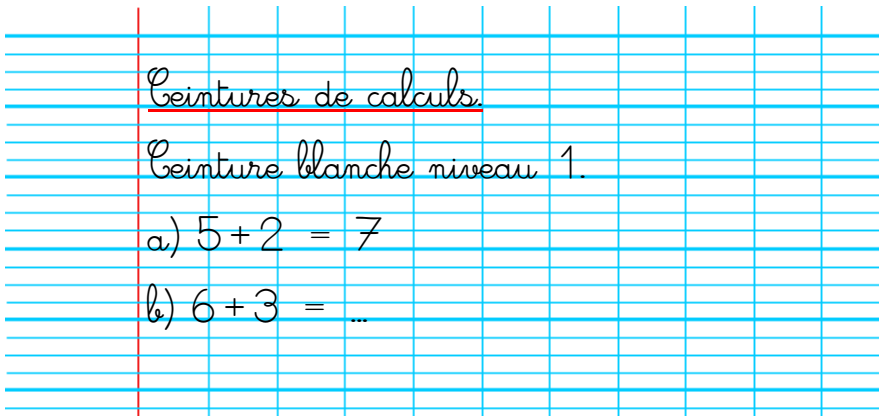 Ceintures de calculs.
Ceinture blanche niveau 1.
a) 5 + 2 = 7
b) 6 + 3 = ...